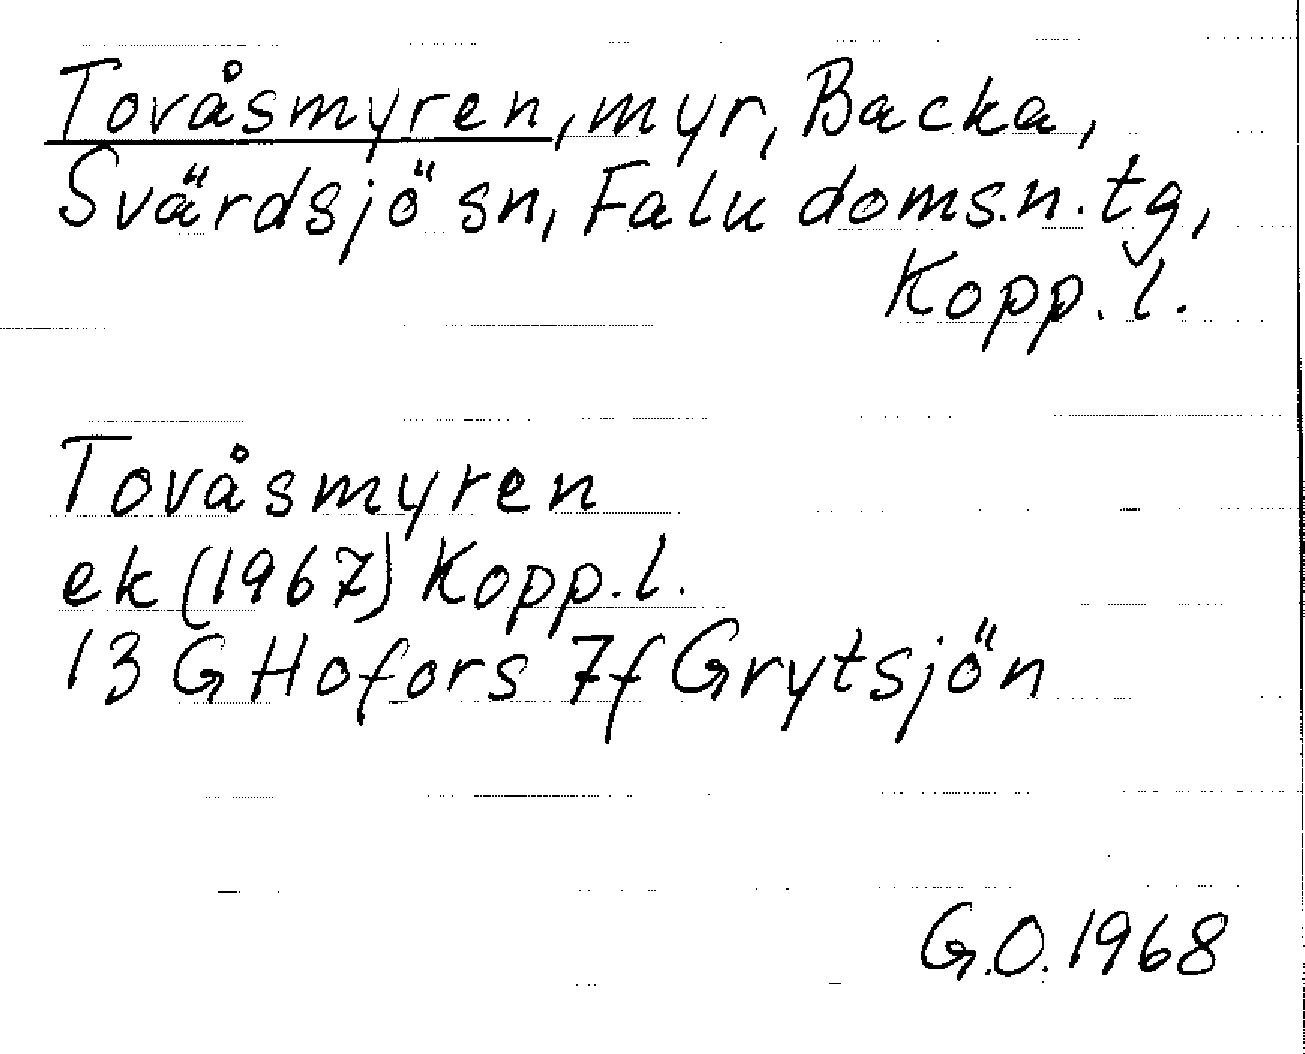 Tovåsmyren, myr, Backa,
Svärdsjö sn, Falu doms.n. tg,
Kopp. l.
Tovåsmyren
ek (1967) Kopp. l.
13 G Hofors 7f Grytsjön
G.O. 1968